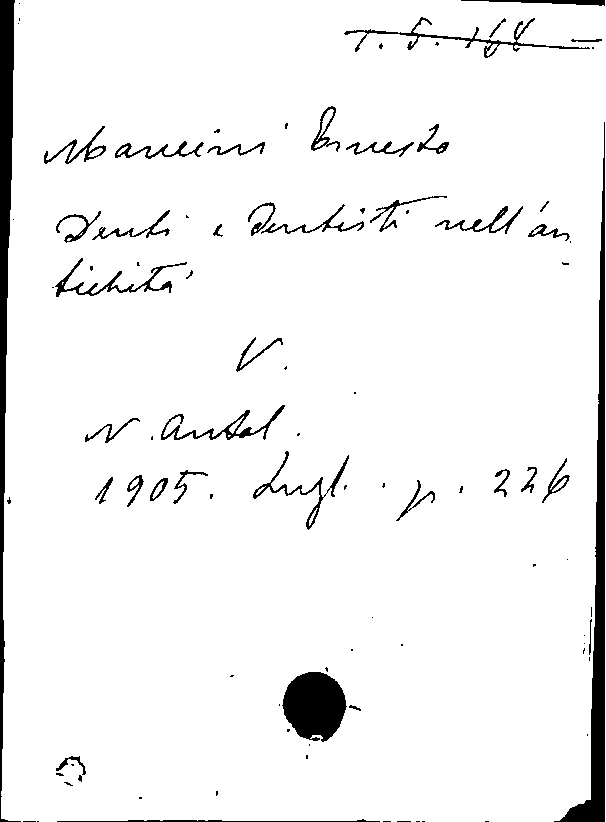 1. 5. 168
Mancini Ernesto
Denti e Dentisti nell'an-
tichità
V.
N. Antol.
1905. Lugl. p. 226